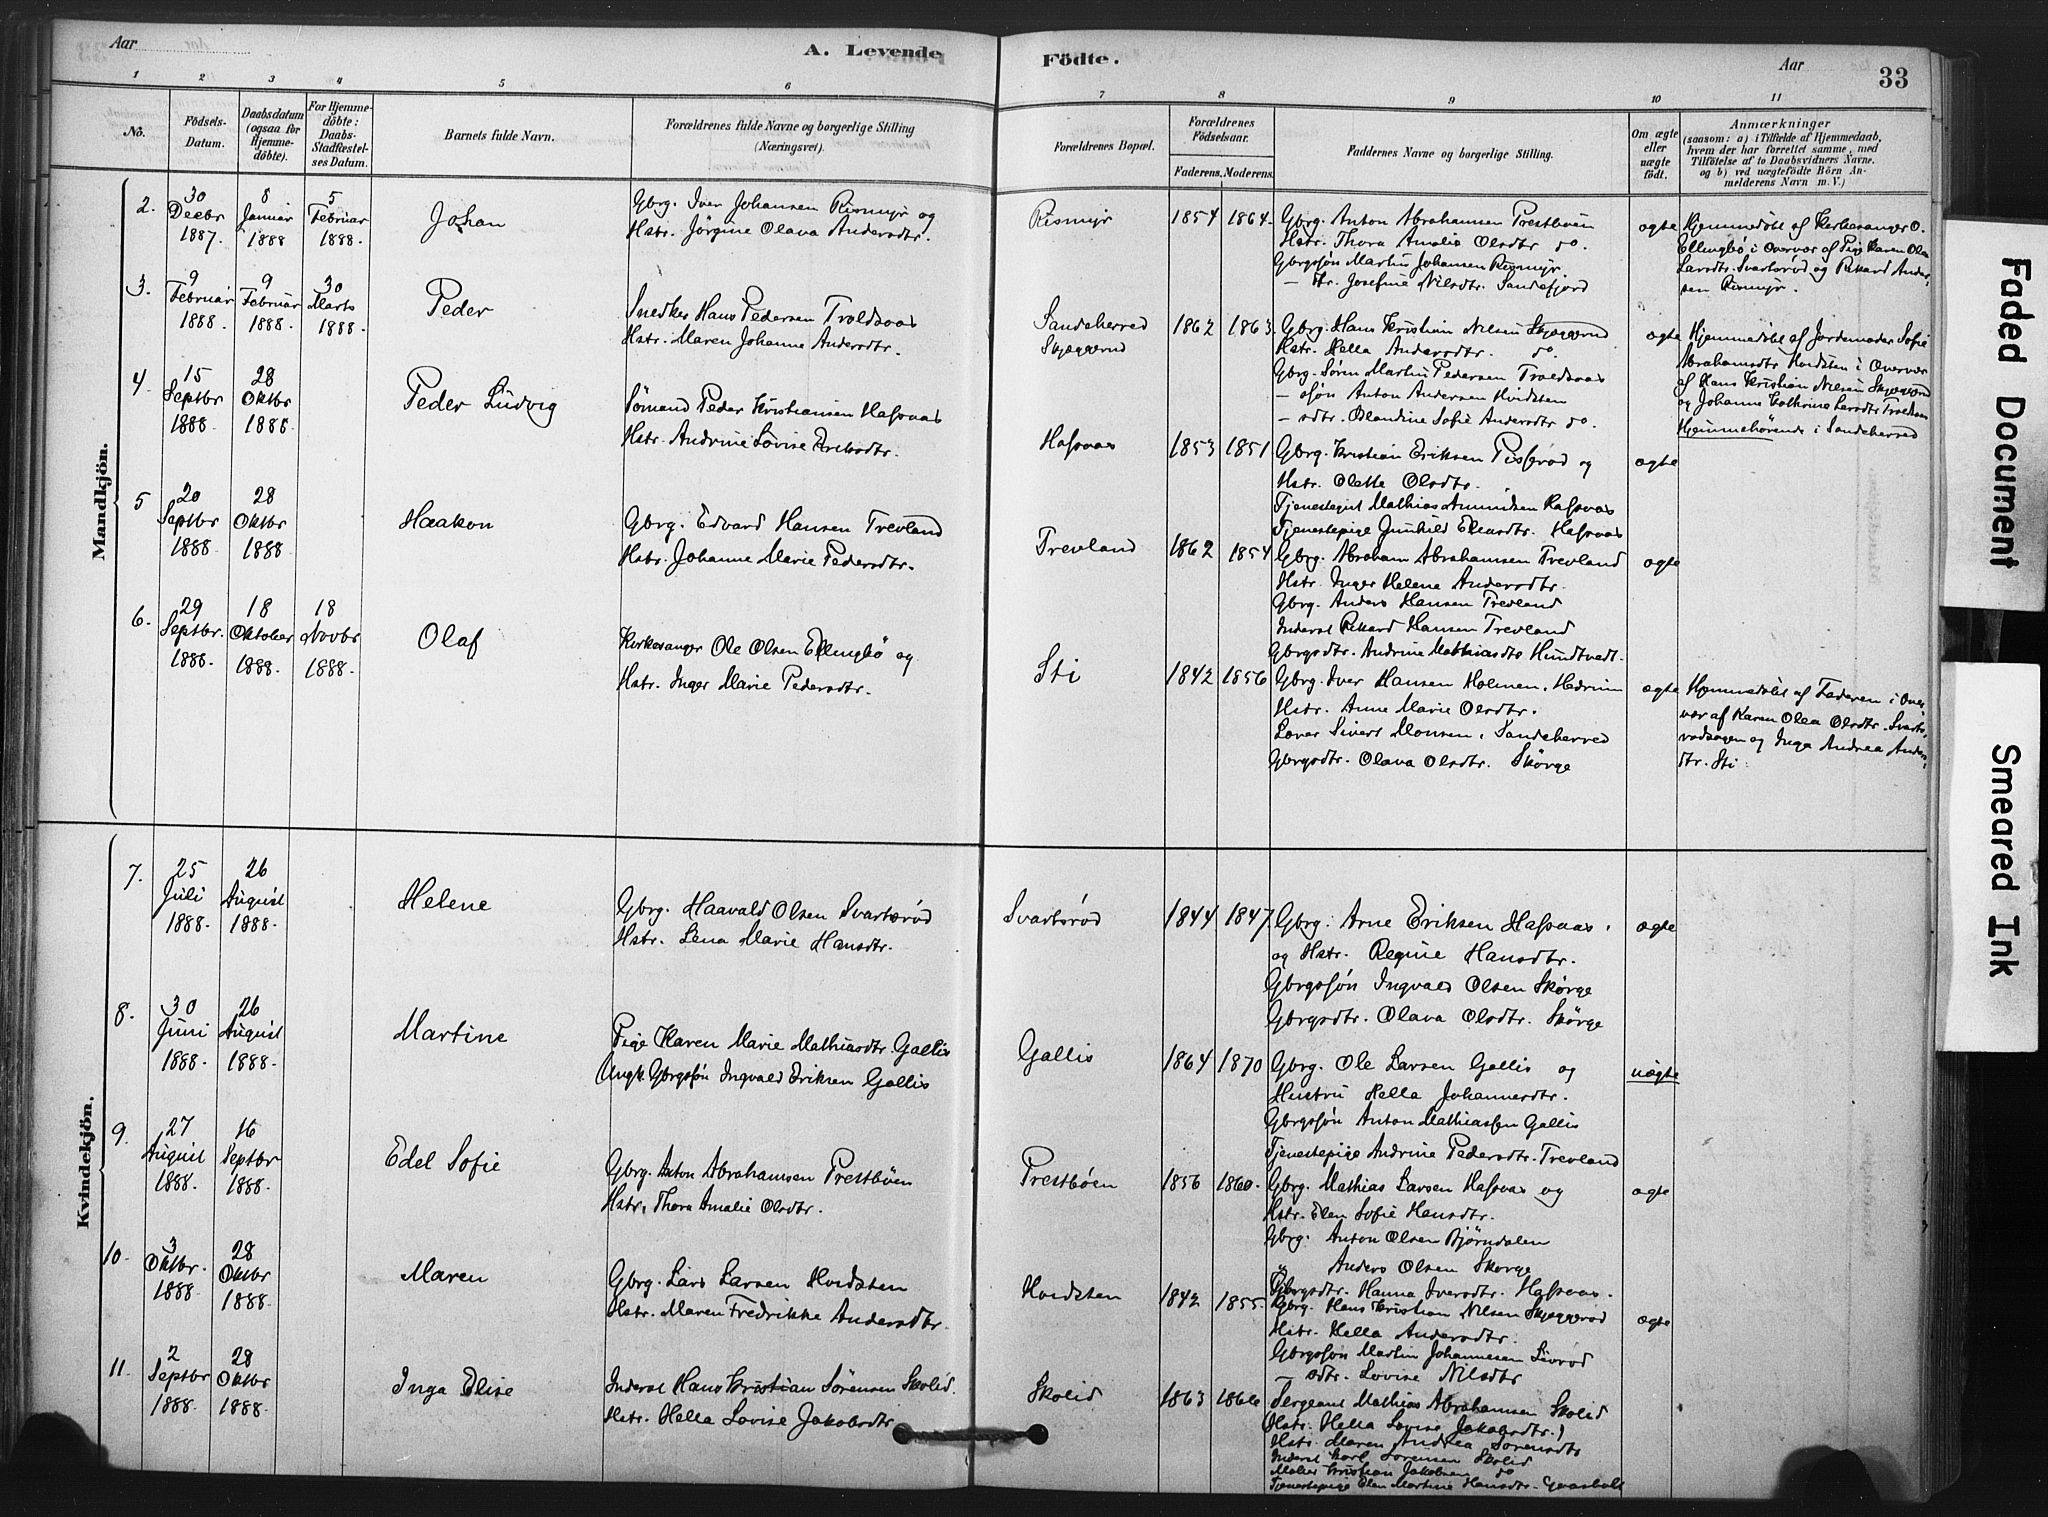 Aar
A. Levende
Födte.
Aar
33
1 2 3 4 5 6 7 8 9 10 11
No.
Födsels-
Datum.
Daabsdatum
(ogsaa for
Hjemme-
döbte).
For Hjemme-
döbte:
Daabs-
Stadfæstel-
ses Datum.
Barnets fulde Navn.
Forældrenes fulde Navne og borgerlige Stilling
(Næringsvei).
Forældrenes Bopæl.
Forældrenes
Födselsaar.
Faderens. Moderens.
Faddernes Navne og borgerlige Stilling.
Om ægte
eller
uægte
födt.
Anmærkninger
(saasom: a) i Tilfælde af Hjemmedaab,
hvem der har forrettet samme, med
Tilföielse af to Daabsvidners Navne.
og b) ved uægtefödte Börn An-
melderens Navn m. V.)
Mandkjön.
2. 30 Decbr 1887. 8 Januar 1888 5 Februar 1888.
Johan
Gbrg. Iver Johansen Rismyr og
Hstr. Jörgine Olava Andersdtr.
Rismyr
1854 1864.
Gbrg. Anton Abrahamsen Prestböen
Hstr. Thora Amalie Olsdtr do.
Gbrgsön Martin Johansen Rismyr
— Htr. Josefine Nilsdtr. Sandefjord
ægte
Hjemmedöbt af Kirkesanger O.
Ellingbö i Overvær af Pige Karen Olea
Larsdtr. Svartsröd og Rikard Ander-
sen Rismyr.
3. 9 Februar 1888. 9 Februar 1888. 30 Marts 1888.
Peder
Snedker Hans Pedersen Troldsaas
Hstr. Maren Johanne Andersdtr.
Sandeherred
Skjeggerud
1862 1863.
Gbrg. Hans Kristian Nilsen Skjeggerud
Hstr. Hella Andersdtr. do.
Gbrg. Sören Martin Pedersen Troldsaas
— sön Anton Andersen Hvidsten
— sdtr. Olandine Sofie Andersdtr do.
ægte
Hjemmedöbt af Jordemoder Sofie
Abrahamsdtr Hvidsten i Overvær
af Hans Kristian Nilsen Skjeggerud
og Johanne Kathrine Larsdtr Troldsaas
Hjemmehörende i Sandeherred
4 15 Septbr 1888. 28 Oktbr 1888.
Peder Ludvig
Sömand Peder Kristiansen Hasaas
Hstr. Andrine Lovise Eriksdtr.
Hasaas
1853 1851
Gbrg. Kristian Eriksen Pisseröd og
Hstr. Olette Olsdtr.
Tjenestegut Mathias Amundsen Hasaas
Tjenestepige Gunhild Eliasdtr. Hasaas
ægte
5 20 Septbr 1888. 28 Oktbr 1888.
Haakon
Gbrg. Edvard Hansen Trevland
Hstr. Johanne Marie Pedersdtr.
Trevland
1862 1854
Gbrg. Abraham Abrahamsen Trevland
Hstr. Inger Helene Andersdtr.
Gbrg. Anders Hansen Trevland
Inderst Rikard Hansen Trevland
Gbrgsdtr. Andrine Mathiasdtr Hundtvedt.
ægte
6. 29 Septbr. 1888. 18 Oktober 1888. 18 Novbr 1888.
Olaf
Kirkesanger Ole Olsen Ellingbö og
Hstr. Inger Marie Pedersdtr.
Sti
1842 1856
Gbrg. Iver Hansen Holmen, Hedrum
Hstr. Anne Marie Olsdtr.
Lærer Sivert Monsen, Sandeherred
Gbrgsdtr. Olava Olsdtr. Skörge
ægte
Hjemmedöbt af Faderen i Over-
vær af Karen Olea Olsdtr. Svarts-
rödsagen og Inga Andrea Anders-
dtr. Sti
Kvindekjön.
7. 25 Juli 1888. 26 August 1888.
Helene
Gbrg. Haavald Olsen Svartsröd
Hstr. Lena Marie Hansdtr.
Svartsröd
1844 1847.
Gbrg. Arne Eriksen Hasaas.
og Hstr. Regine Hansdtr.
Gbrgssön Ingvald Olsen Skörge
Gbrgsdtr. Olava Olsdtr. Skörge
ægte
8. 30 Juni 1888. 26 August 1888.
Martine
Pige Karen Marie Mathiasdtr. Gallis
Ungk. Gbrgssön Ingvald Eriksen Gallis
Gallis
1864 1870
Gbrg. Ole Larsen Gallis og
Hustru Hella Johannesdtr.
Gbrgssön Anton Mathiassen Gallis
Tjenestepige Andrine Pedersdtr. Trevland
uægte
9. 27 August 1888. 16 Septbr 1888.
Edel Sofie
Gbrg. Anton Abrahamsen Prestböen
Hstr. Thora Amalie Olsdtr.
Prestböen
1856 1860.
Gbrg. Mathias Larsen Hasaas og
Hstr. Elen Sofie Hansdtr.
Gbrg. Anton Olsen Björndalen
" Anders Olsen Skorge
Gbrgsdtr. Hanna Iversdtr. Hasaas.
ægte
10. 3 Oktbr. 1888. 28 Oktbr 1888.
Maren
Gbrg. Lars Larsen Hvidsten
Hstr. Maren Fredrikke Andersdtr.
Hvidsten
1842 1855.
Gbrg. Hans Kristian Nilsen Skjeggerød
Hstr. Hella Andersdtr.
Gbrgssön Martin Johannesen Livröd
— sdtr. Lovise Nilsdtr
ægte
11. 2 Septbr 1888. 28 Oktbr 1888.
Inga Elise
Inderst Hans Kristian Sörensen Skolid.
Hstr. Hella Lovise Jakobsdtr
Skolid
1863 1866
Sergeant Mathias Abrahamsen Skolid
Hstr. Hella Lovise Jakobsdtr.)
Hstr. Maren Andrea Sorensdtr
Inderst Karl Sorensen Skolid
Kristian Jakobsen do
Tjenestepige Elen Martine Hansdtr. Gaasholt
Faded Document
Smeared Ink